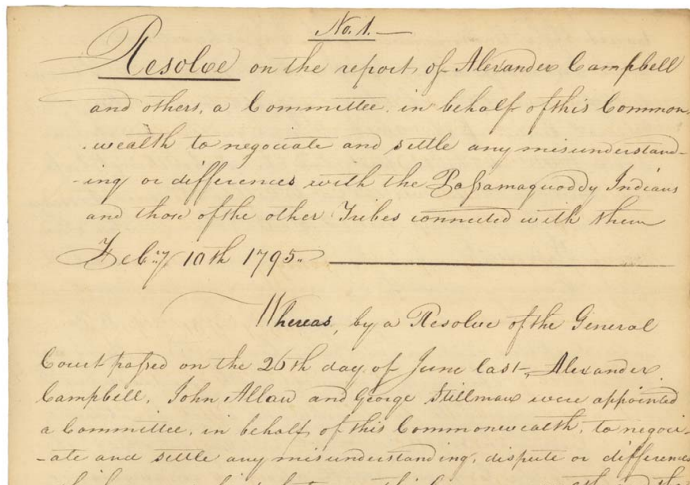 No. 1.
Resolve on the report of Alexander Campbell
and others, a Committee, in behalf of this Common-
-wealth to negociate and settle any misunderstand-
-ing or differences with the Passamaquoddy Indians
and those of the other Tribes connected with them
Feb:ry 10th 1795.
Whereas, by a Resolve of the General
Court passed on the 26th day of June last, Alexander
Campbell, John Allan and George Stillman were appointed
a Committee, in behalf of this Commonwealth, to negoci-
-ate and settle any misunderstanding, dispute or difference